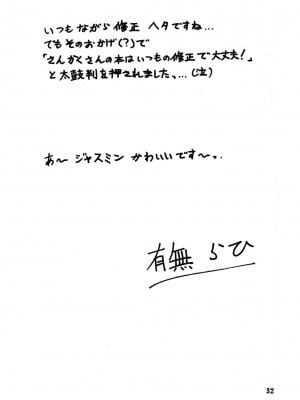 いつもながら修正 ヘタですね...
でもそのおかげ(?)で
「さんかくさんの本はいつもの修正で大丈夫!」
と太鼓判を押されました...(泣)
あ～ ジャスミン かわいいです～..
有無 らひ
32